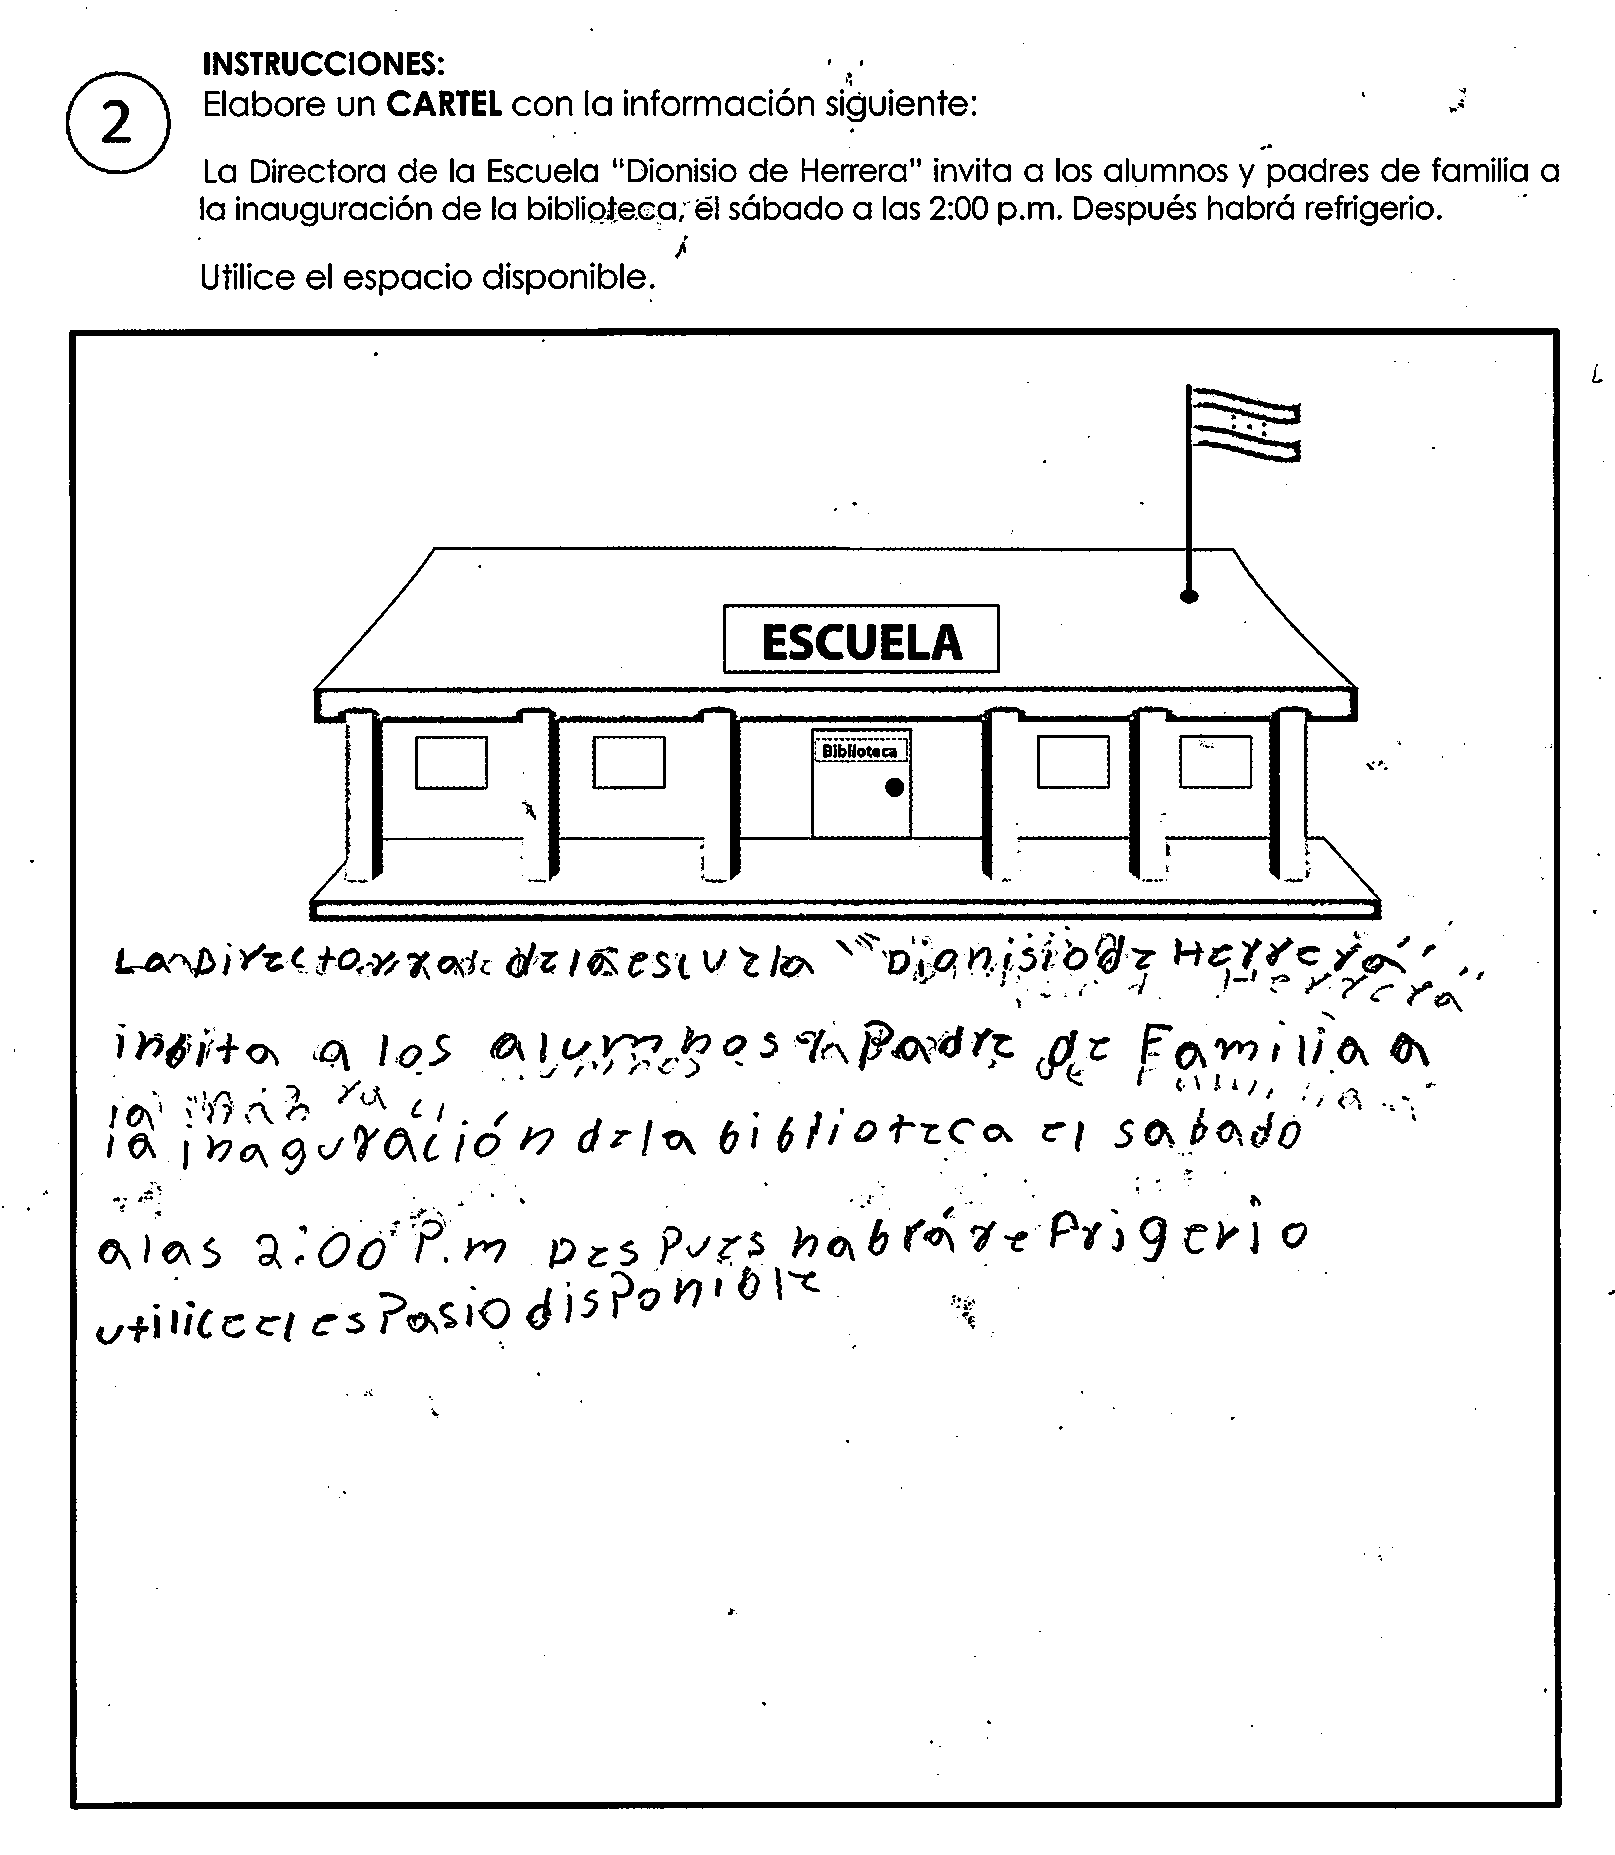 INSTRUCCIONES:
2
Elabore un CARTEL con la información siguiente:
La Directora de la Escuela "Dionisio de Herrera" invita a los alumnos y padres de familia a
la inauguración de la biblioteca, el sábado a las 2:00 p.m. Después habrá refrigerio.
Utilice el espacio disponible.
ESCUELA
Biblioteca
La Directora de la escuela "Dionisio de Herrera"
inbita a los alumnos y Padre de Familia a
la inaguración de la biblioteca el sabado
a las 2:00 P.m Despues habrá refrigerio
utilice el espasio disponible